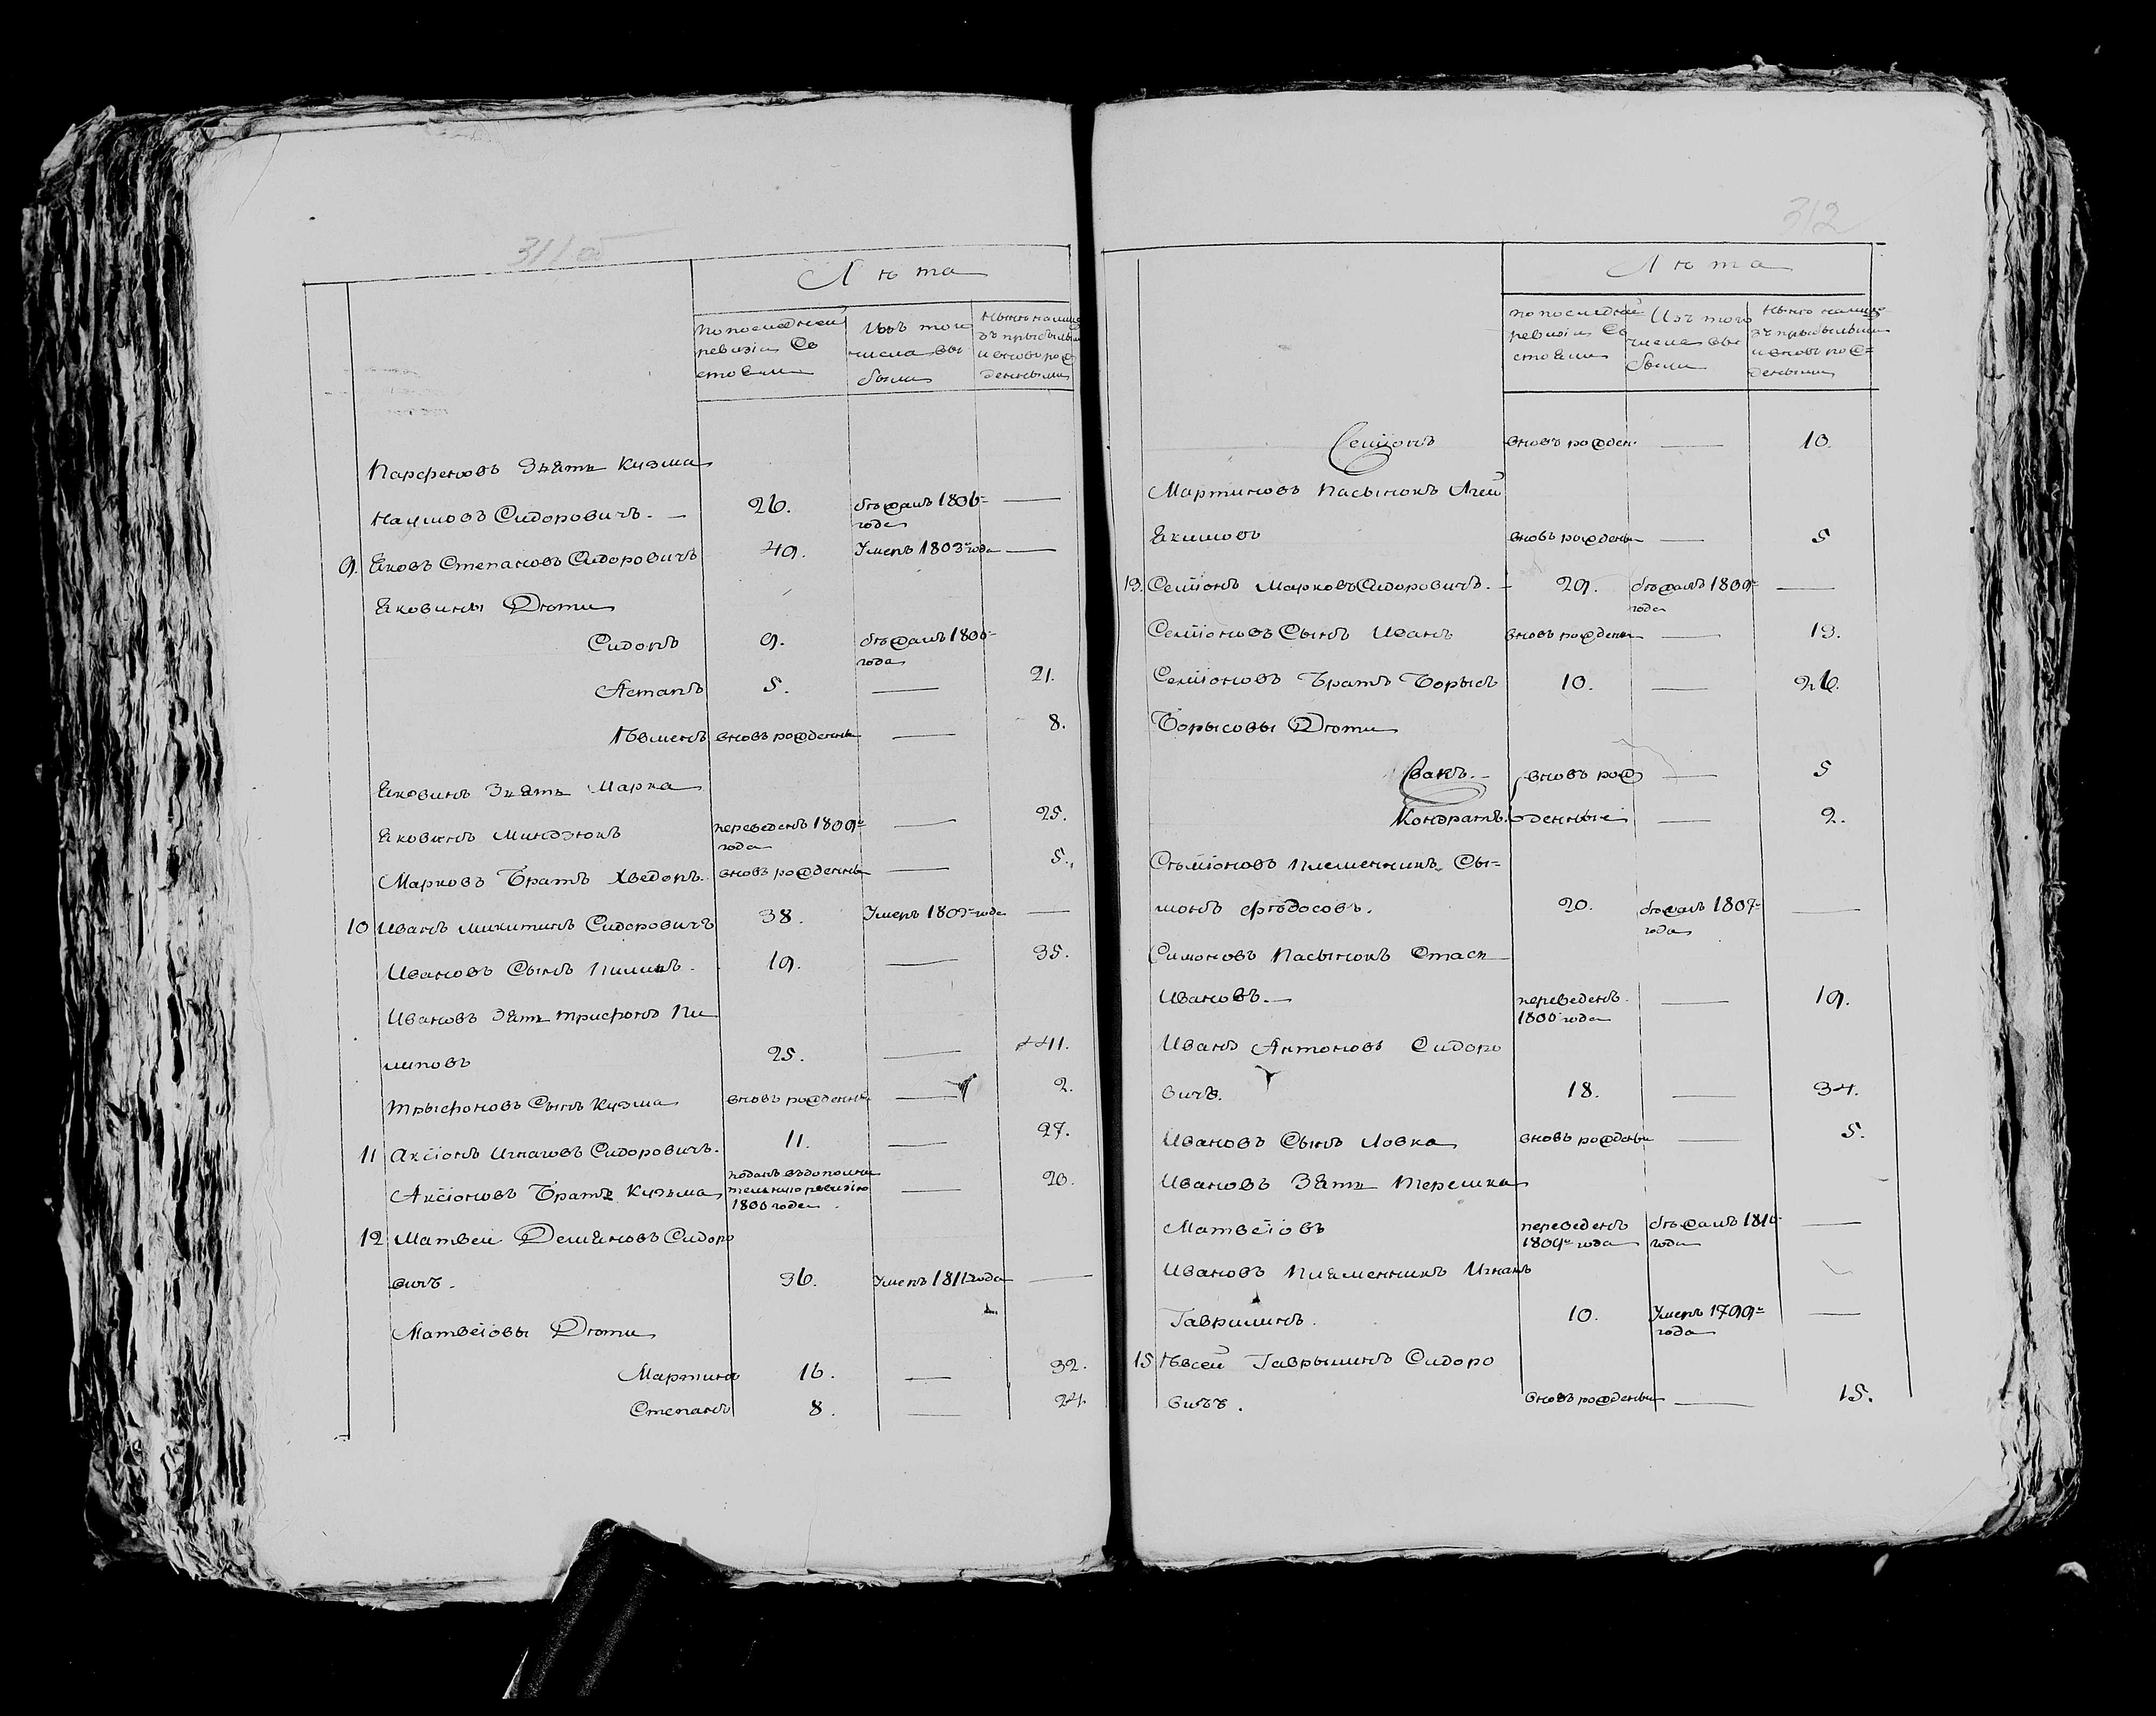 311 об
Лѣта
по последней
ревизіи Со
стояли
Изъ того
числа вы
были
Нынѣ на лицо
зъ прыбылыми
и вновь рож
денными
Парфеновъ Зять Кузма
Наумовъ Сидоровичъ. — 26. бѣжалъ 1806= года —
9. Яковъ Степановъ Сидоровичъ 49. Умеръ 1803го года —
Яковины Дѣти
Сидоръ 9. бѣжалъ 1800= года
Астапъ 5. — 21.
Евменъ вновь рожденны — 8.
Яковинъ Зять Марка
Яковинъ переведенъ 1809го года — 25.
Марковъ Братъ Хведоръ. вновь рожденны — 5.
10 Иванъ Микитинъ Сидоровичъ 38. Умеръ 1805го года —
Ивановъ Сынъ Пилипъ. 19. — 35.
Ивановъ Зять Трифонъ Пи
липовъ 25. — 41.
Трыфоновъ Сынъ Кузма вновь рожденны — 2.
11 Аксіонъ Игнатовъ Сидоровичъ. 11. — 27.
Аксіоновъ Братъ Кузьма поданъ въ дополни
тельную ревизію
1800 года. — 20.
12 Матвей Демяновъ Сидоро
вичъ. 36. Умеръ 1811 года —
Матвеіовы Дѣти
Мартинъ 16. — 32.
Степанъ 8. — 24.
312
Лѣта
по последней
ревизіи Со
стояли
Изъ того
числа вы
были
Нынѣ на лицо
зъ прыбылыми
и вновь рож=
денными
Семіонъ вновь рожден — 10.
Мартиновъ Пасынокъ Агей
Якимовъ вновь рожденны — 5
13. Семіонъ Марковъ Сидоровичъ. — 29. бѣжалъ 1809= года —
Семіоновъ Сынъ Иванъ вновь рожденны — 13.
Семіоновъ Братъ Борысъ 10. — 26.
Борысовы Дѣти
Сакъ. — вновь рож — 5
Кондратъ. денныі — 2.
Семіоновъ Племенникъ Сы=
монъ Фѣдосовъ. 20. бѣжалъ 1807= года —
Симоновъ Пасынокъ Стась
Ивановъ. — переведенъ
1800 года — 19.
Иванъ Антоновъ Сидоро
вичъ. 18. — 34.
Ивановъ СынъЛовка вновь рожденны — 5.
Ивановъ Зять Терешка
Матвеіовъ переведенъ
1809го года бѣжалъ 1810 года —
Ивановъ Племенникъ Игнатъ
Гаврилинъ. 10. Умеръ 1799го года —
15 Евсей Гаврылинъ Сидоро
вичъ. вновь рожденны — 15.